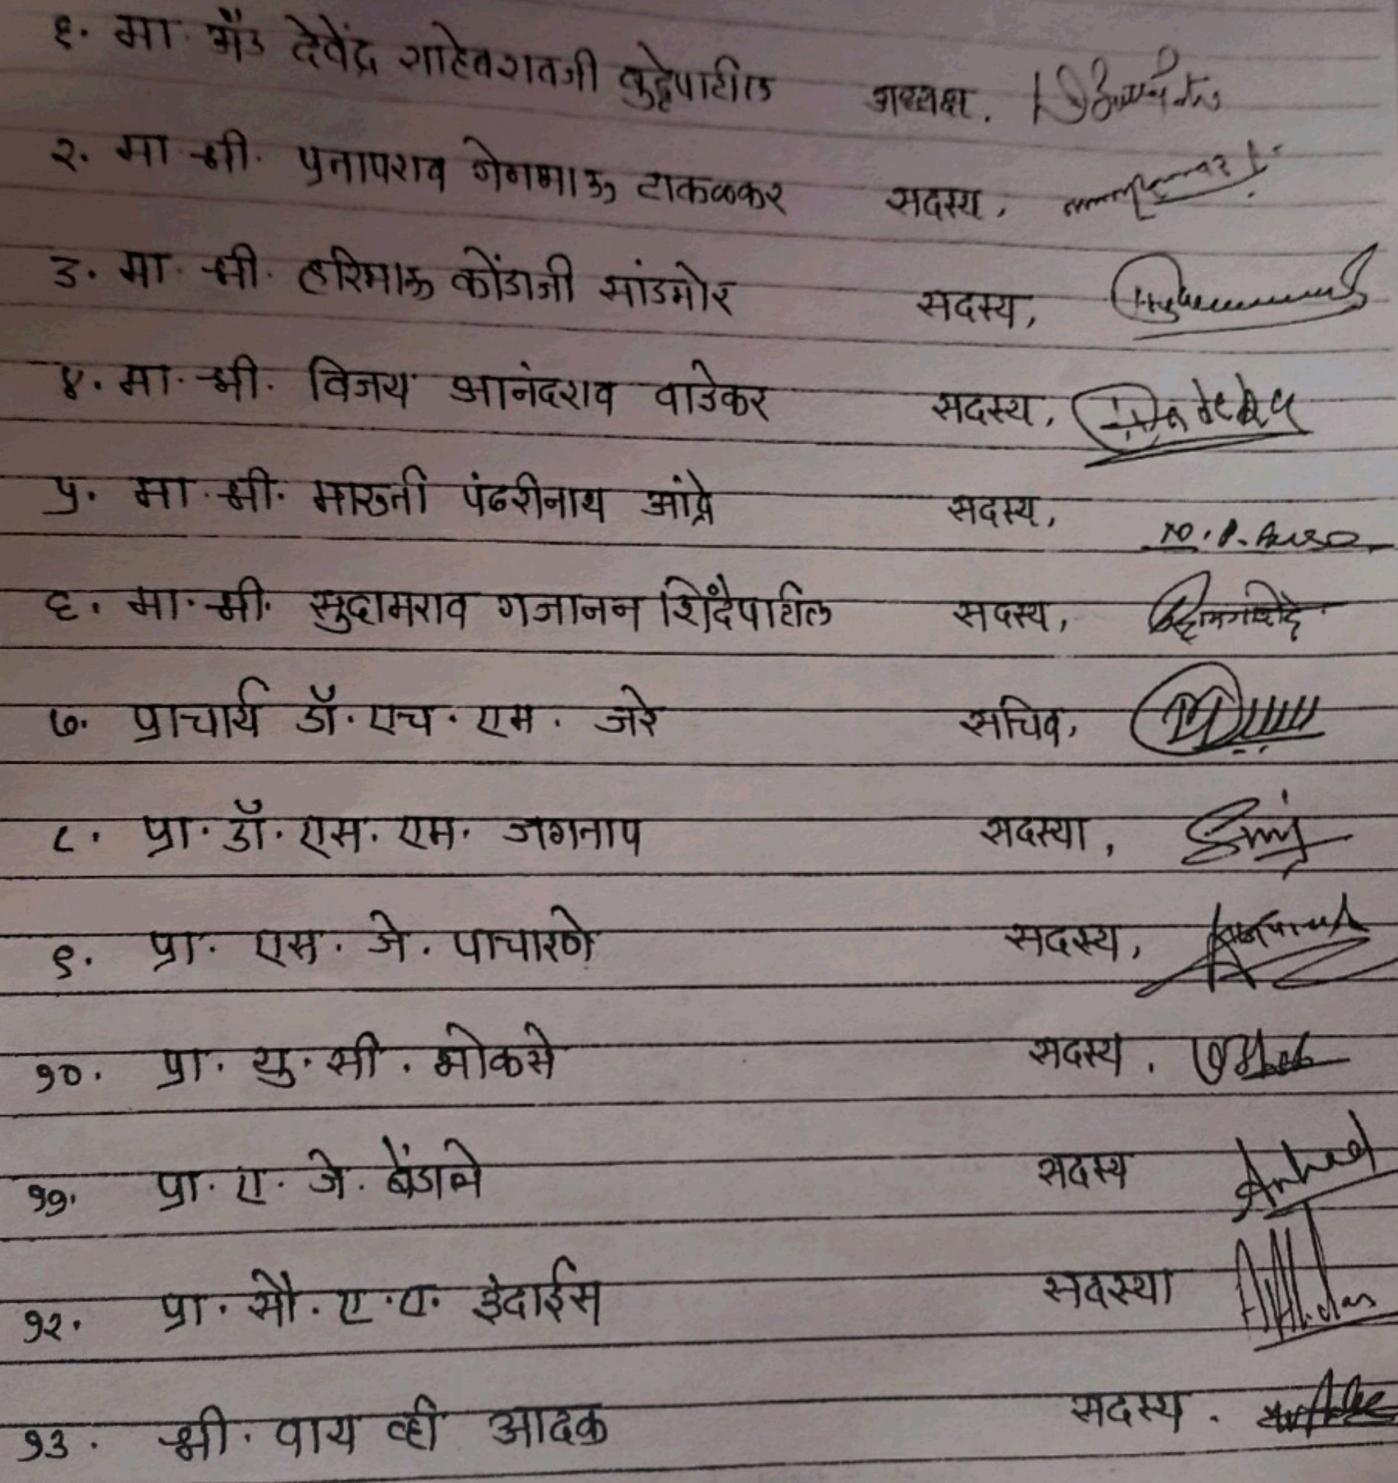 १. मा. ॲड देवेंद्र शाहेबरावजी बुट्टेपाटील अध्यक्ष.
२. मा श्री. प्रतापराव गेनभाऊ टाकळकर सदस्य,
३. मा. श्री. हरिभाऊ कोंडाजी सांडभोर सदस्य,
४. मा. श्री. विजय आनंदराव वाडेकर सदस्य,
५. मा. श्री. मारुती पंढरीनाथ आंद्रे सदस्य,
६. मा. श्री. सुदामराव गजानन शिंदेपाटील सदस्य,
७. प्राचार्य डॉ. एच. एम. जरे सचिव,
८. प्रा. डॉ. एस. एम. जगताप सदस्या,
९. प्रा. एस. जे. पाचारणे सदस्य,
१०. प्रा. यु. सी. भोकसे सदस्य.
११. प्रा. ए. जे. बेंडाले सदस्य
१२. प्रा. सौ. ए. ए. इदाईस सदस्या
१३. श्री. वाय व्ही आदक सदस्य.